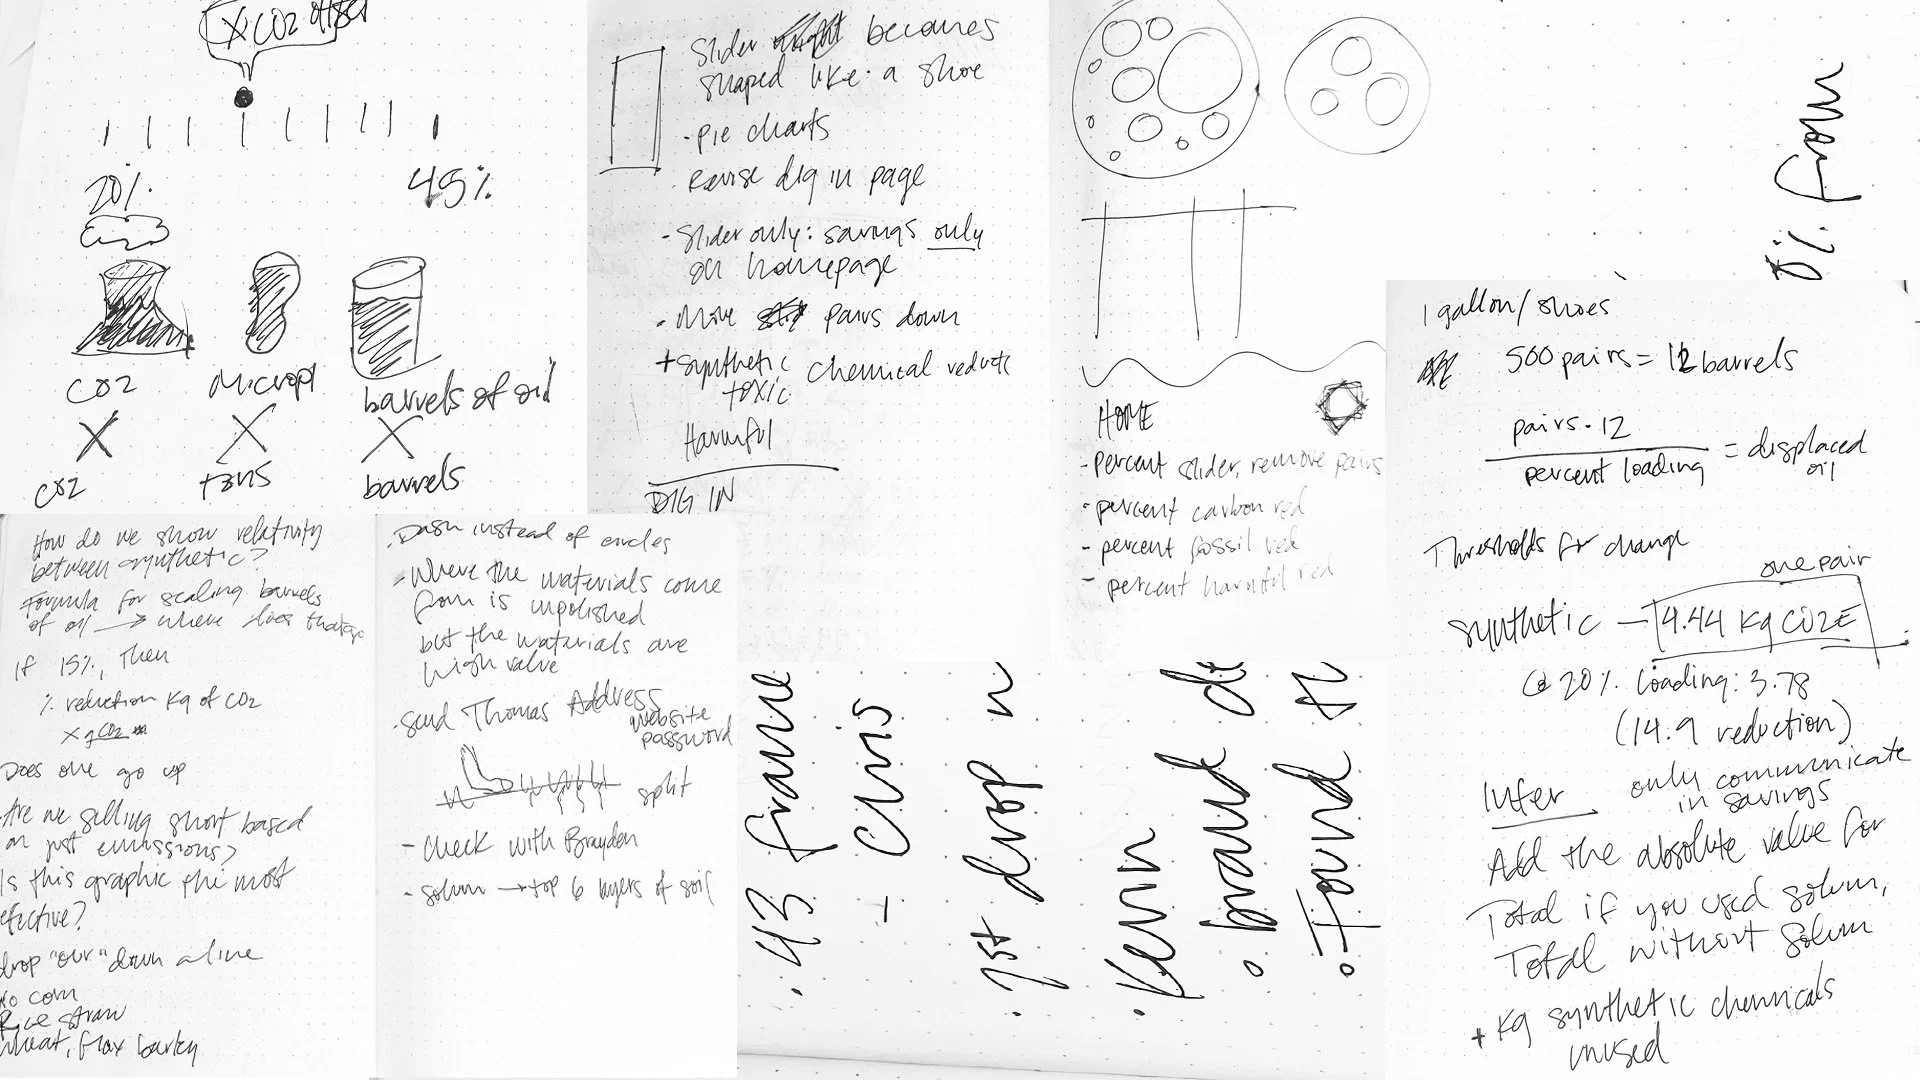 X CO2 offset
20%
45%
CO2
microp
barrels of oil
X
X
X
CO2
tons
barrels
Slider becomes
shaped like a shoe
- pie charts
- revise dig in page
- Slider only: savings only
on homepage
- move pairs down
+ synthetic chemical reduct
toxic
Harmful
DIG IN
HOME
- percent slider, remove pairs
- percent carbon red
- percent fossil red
- percent harmful red
% from
1 gallon/shoes
500 pairs = 12 barrels
pairs · 12
percent loading
= displaced
oil
Thresholds for change
one pair
synthetic – 4.44 Kg CO2E
@ 20% loading: 3.78
(14.9 reduction)
Infer only communicate
in savings
Add the absolute value for
Total if you used solum,
Total without solum
+ Kg synthetic chemicals
unused
How do we show relativity
between synthetic?
Formula for scaling barrels
of oil → where does that go
If 15%, then
% reduction Kg of CO2
x g CO2
Does one go up
Are we selling short based
on just emissions?
Is this graphic the most
effective?
drop "our" down a line
No corn
Rice straw
wheat, flax barley
- Dash instead of circles
- Where the materials come
from is unpolished
but the materials are
high value
- Send Thomas Address
website
password
split
- check with Brayden
- solum → top 6 layers of soil
· 43 frame
– Chris
· 1st drop n
· Kevin
· brand de
· Found